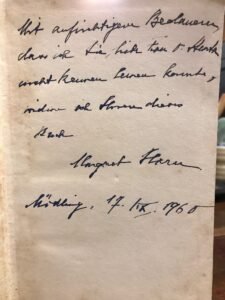 Mit aufrichtigem Bedauern,
dass ich Sie, liebe Frau
nicht kennen lernen konnte,
widme ich Ihnen dieses
Buch
Margret
Mödling, 17. IX. 1960